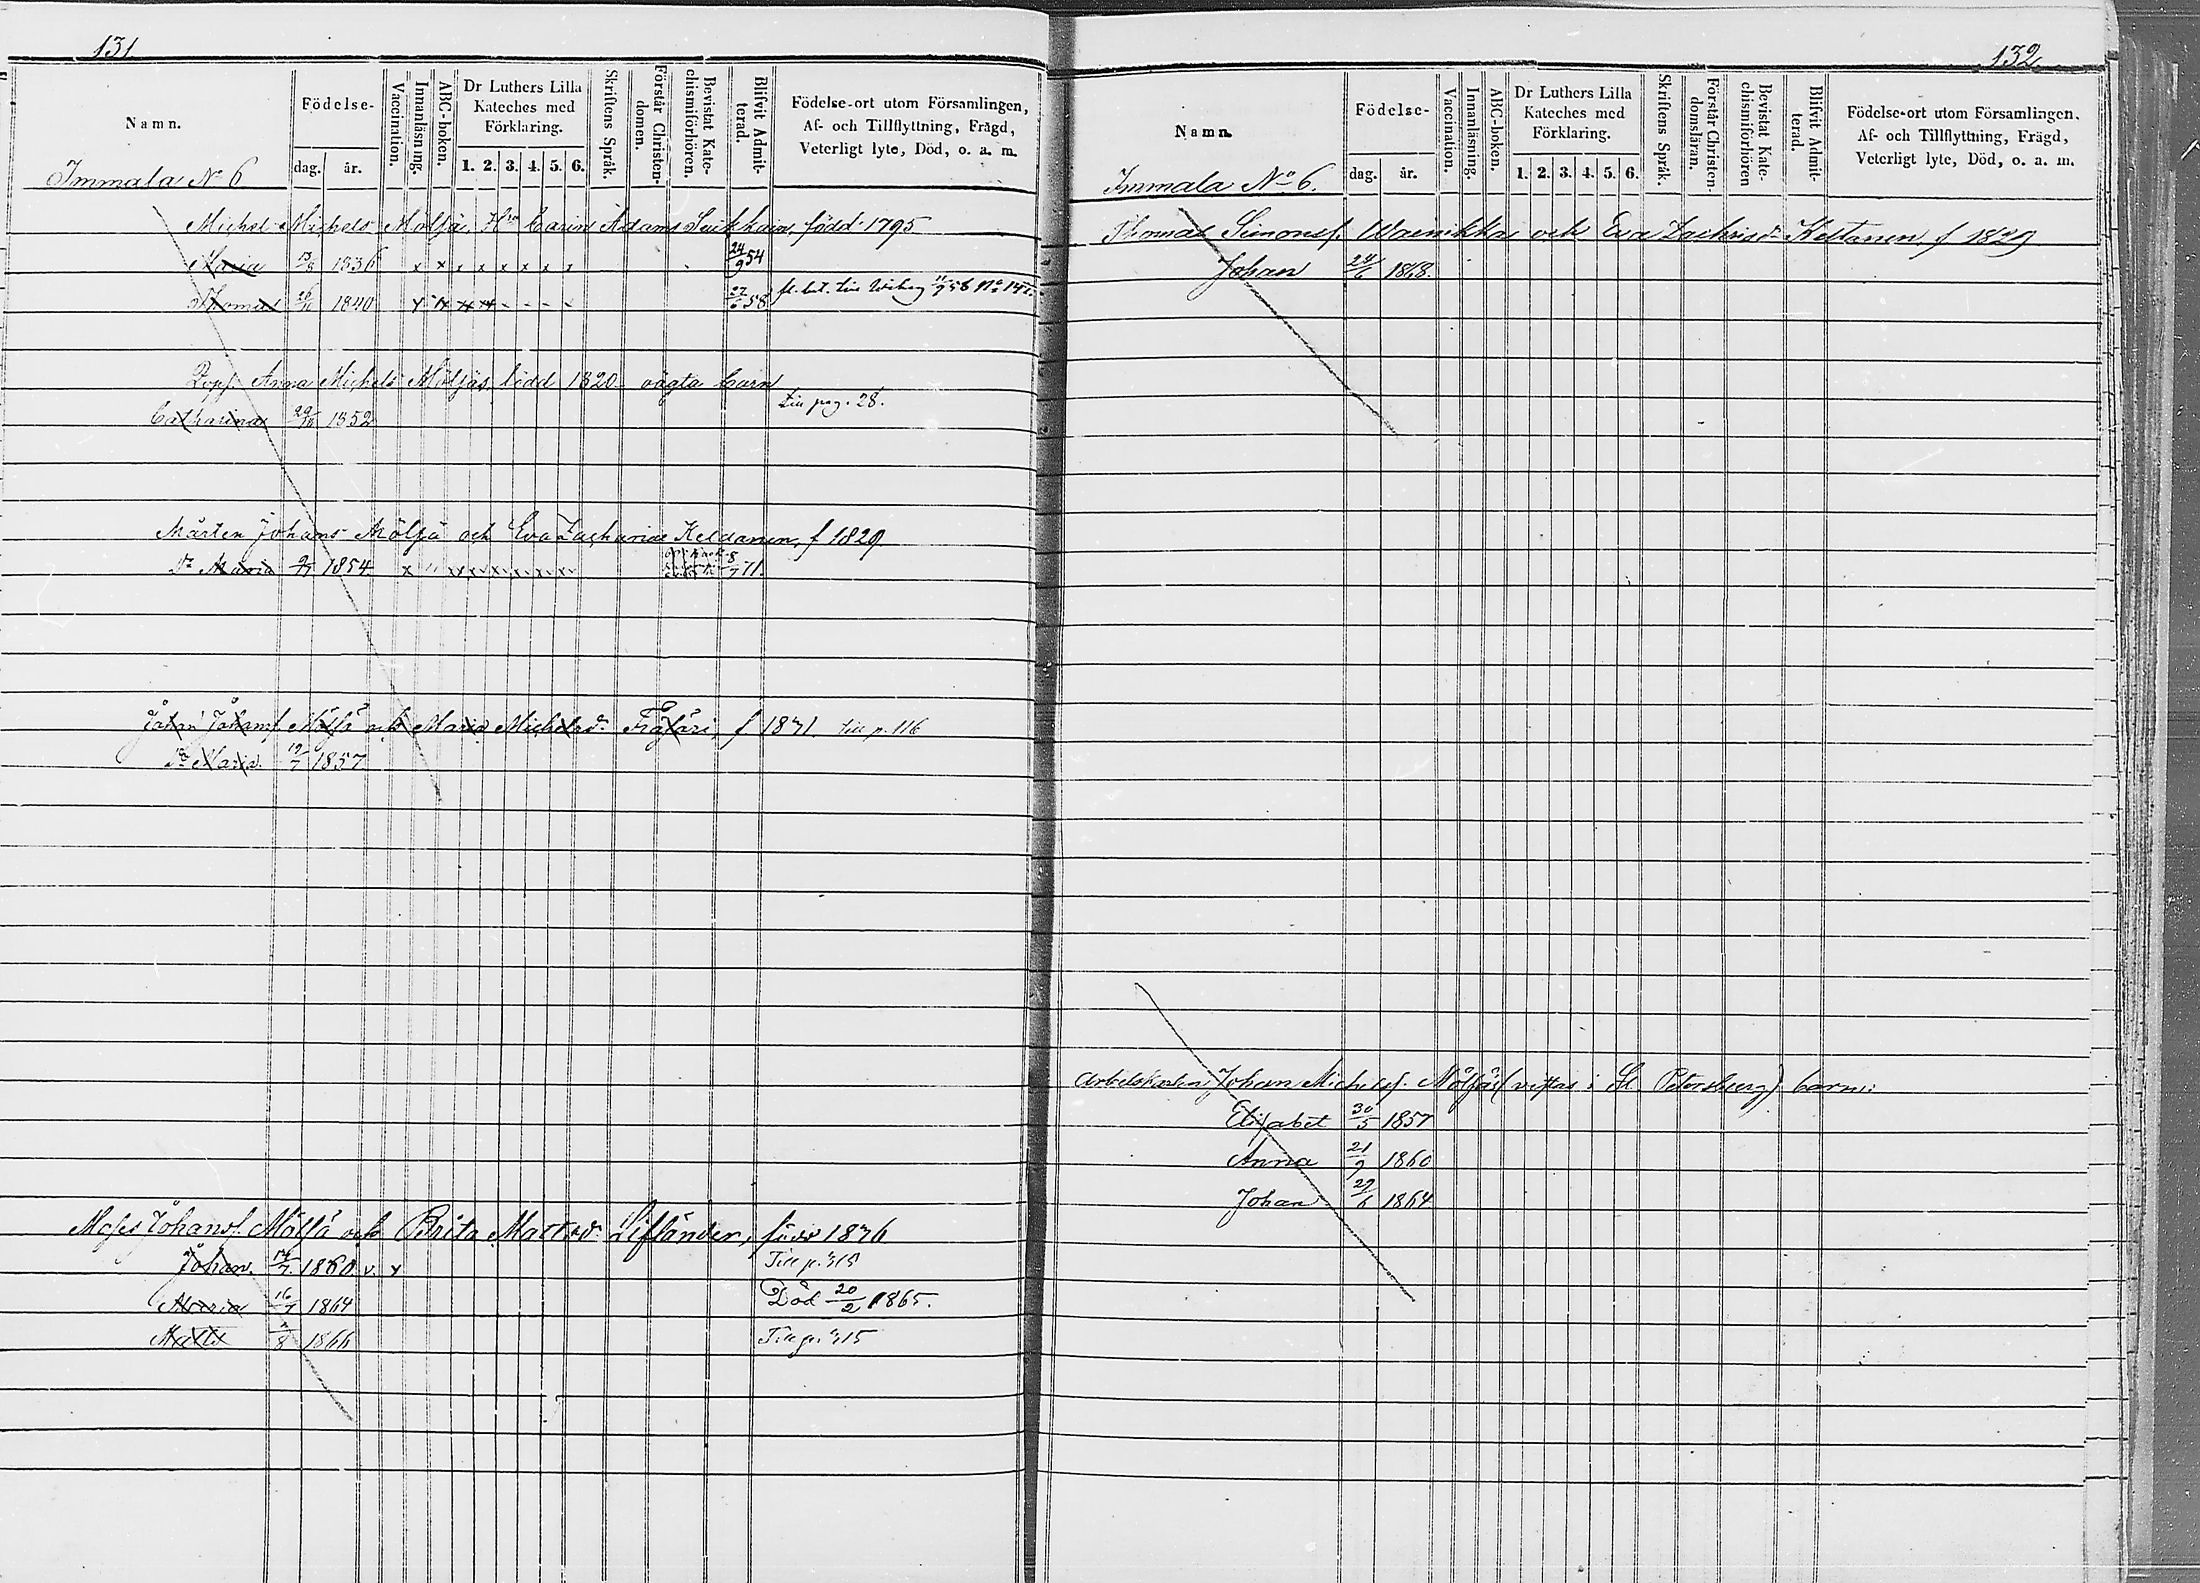 131
Namn.
Födelse-
dag. år.
Vaccination.
Innanläsning.
ABC-boken.
Dr Luthers Lilla
Kateches med
Förklaring.
1. 2. 3. 4. 5. 6.
Skriftens Språk.
Förstår Christen-
domen.
Bevistat Kate-
chismiförhören.
Blifvit Admit-
terad.
Födelse-ort utom Församlingen,
Af- och Tillflyttning, Frägd,
Veterligt lyte, Död, o. a. m.
Immala No 6
Michel Michels Mölsä, Hu Carin Adams Suikkain, född 1795
Maria 1836 x x x x x x x x 24/9 54
Thomas 1840 27/6 58
Anna Michels Mölsäs född 1820 oägta barn
Catharina 1852 till pag. 28.
Mårten Johans Mölsä och Eva Zachariae Keldanen, f 1829
Dr Maria 1854 71.
Johan Johansf. Mölsä och Maria Michelsdr f 1831. till p. 116
Dr Maria 19/7 1857
Moses Johansf. Mölsä och Brita Mattsdr Lifländer, född 1836
Johan. 1860 v. x Till p. 315
Maria 16/7 1864 Död 20/2 1865.
Matts 1866 Till p. 315
132
Namn.
Födelse-
dag. år.
Vaccination.
Innanläsning.
ABC-boken.
Dr Luthers Lilla
Kateches med
Förklaring.
1. 2. 3. 4. 5. 6.
Skriftens Språk.
Förstår Christen-
domsläran.
Bevistat Kate-
chismiförhören
Blifvit Admit-
terad.
Födelse-ort utom Församlingen.
Af- och Tillflyttning, Frägd,
Veterligt lyte, Död, o. a. m.
Immala No 6.
Thomas Simonsf. Waenikka och Eva Zachrisdr Keltanen f 1829
Johan 24/6 1868.
Arbetskarlen Johan Michelsf. Mölsäs (vistas i St. Petersburg) barn:
Elisabet 30/5 1857
Anna 21/9 1860
Johan 29/6 1864